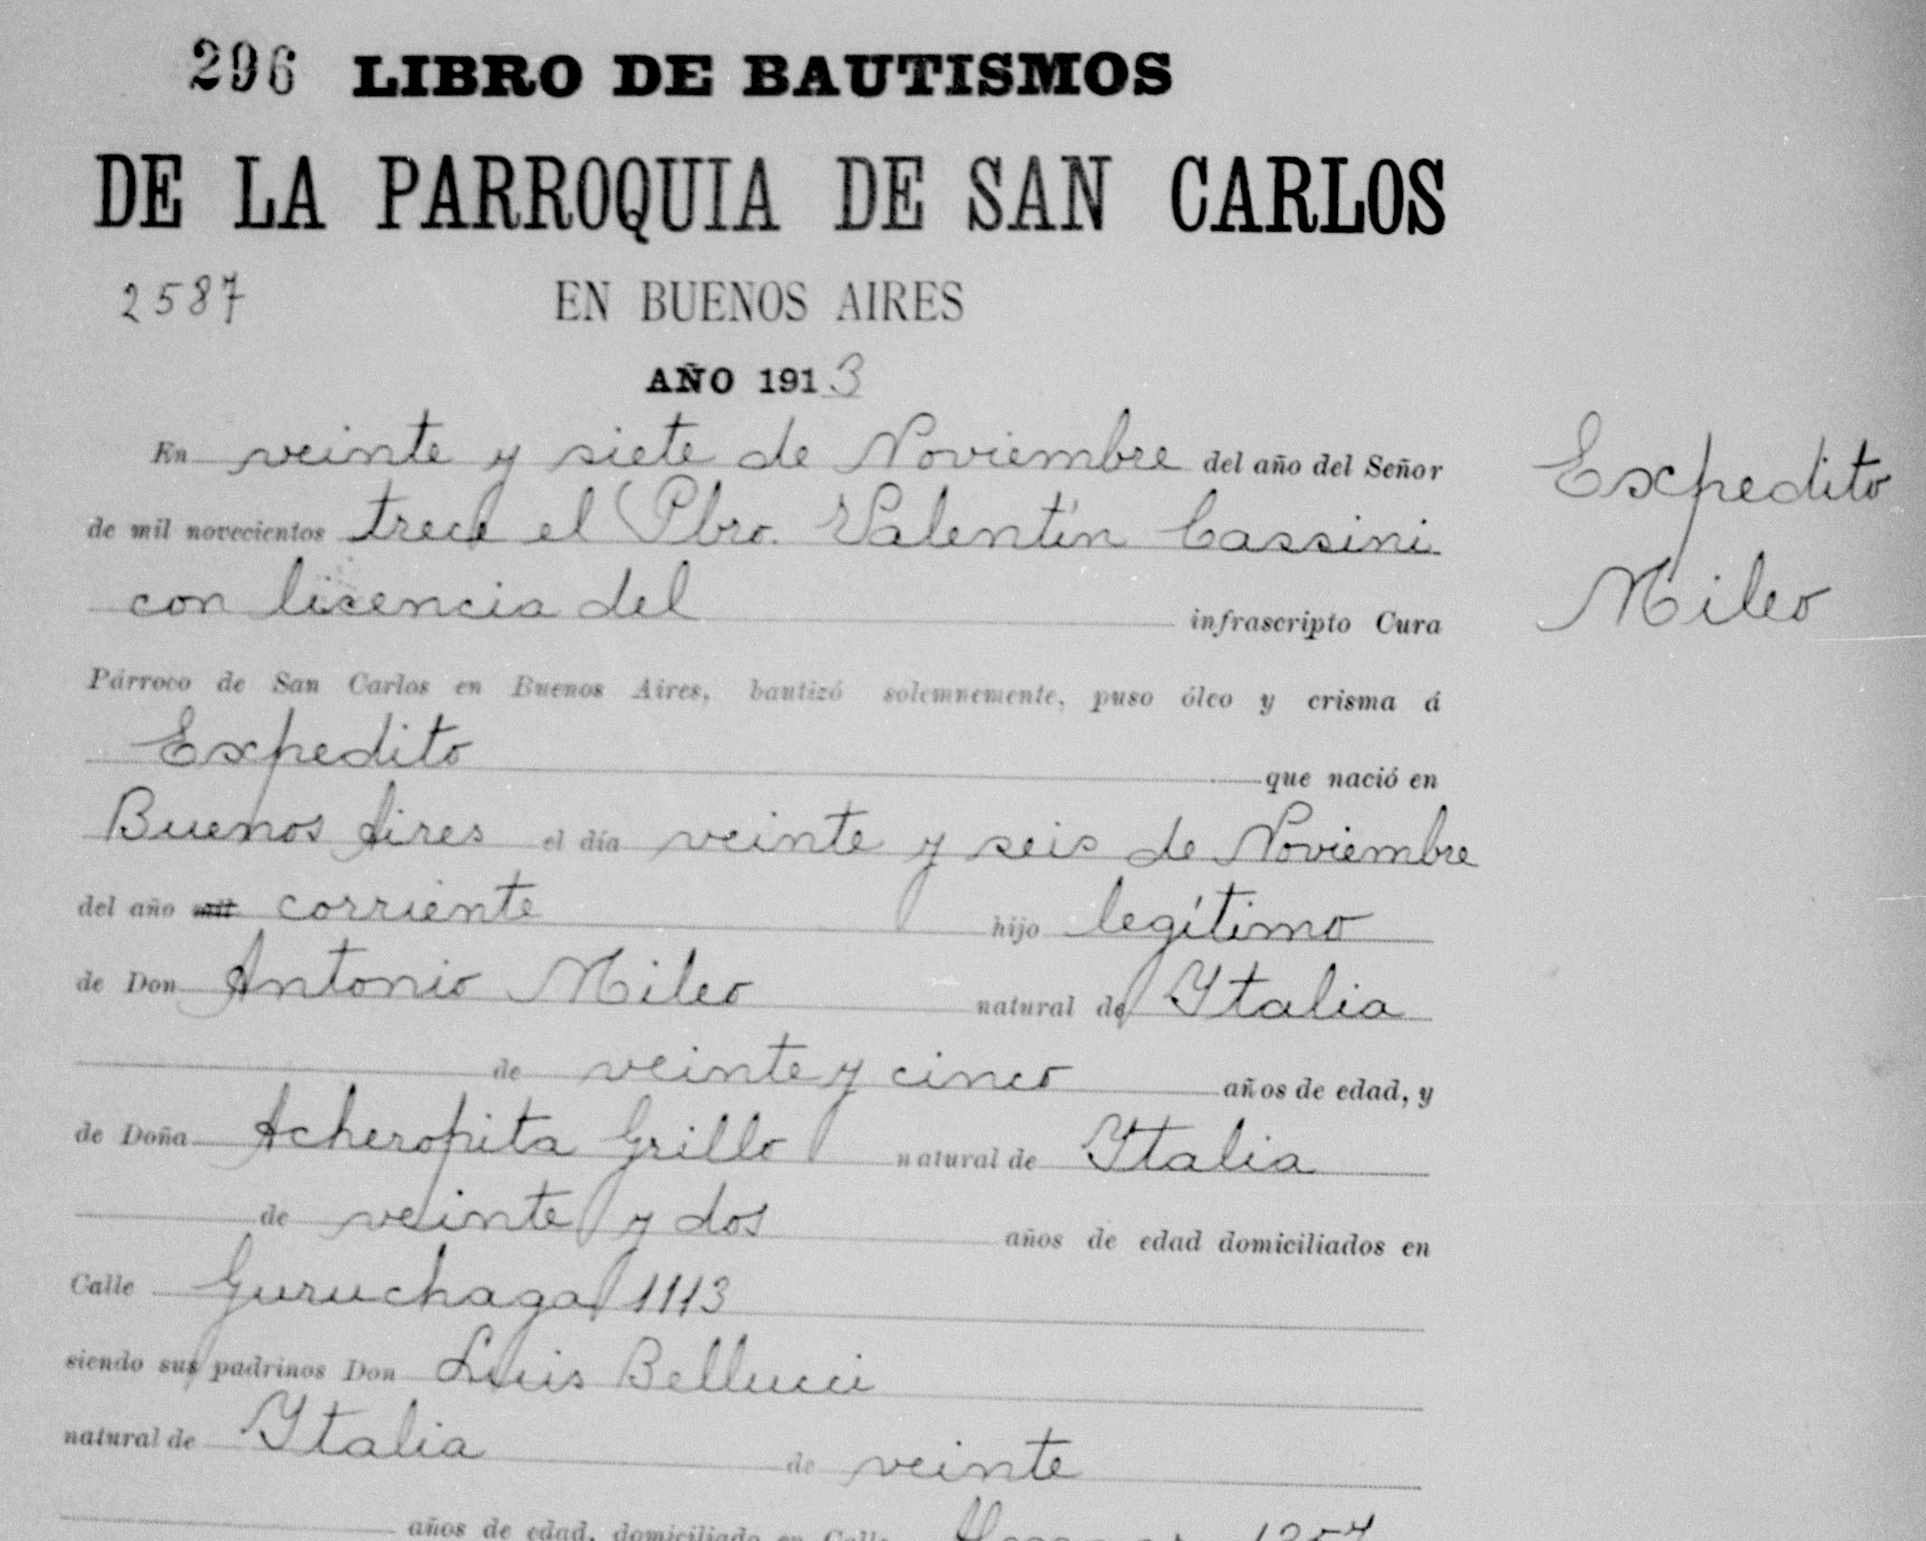 296 LIBRO DE BAUTISMOS
DE LA PARROQUIA DE SAN CARLOS
2587 EN BUENOS AIRES
AÑO 1913
En veinte y siete de Noviembre del año del Señor
Expedito
de mil novecientos trece el Pbro. Valentín Cassini
con licencia del infrascripto Cura
Mileo
Párroco de San Carlos en Buenos Aires, bautizó solemnemente, puso óleo y crisma á
Expedito que nació en
Buenos Aires el día veinte y seis de Noviembre
del año mil corriente hijo legítimo
de Don Antonio Mileo natural de Italia
de veinte y cinco años de edad, y
de Doña Acheropita Grillo natural de Italia
de veinte y dos años de edad domiciliados en
Calle Guruchaga 1113
siendo sus padrinos Don Luis Bellucci
natural de Italia de veinte
años de edad, domiciliado en Calle